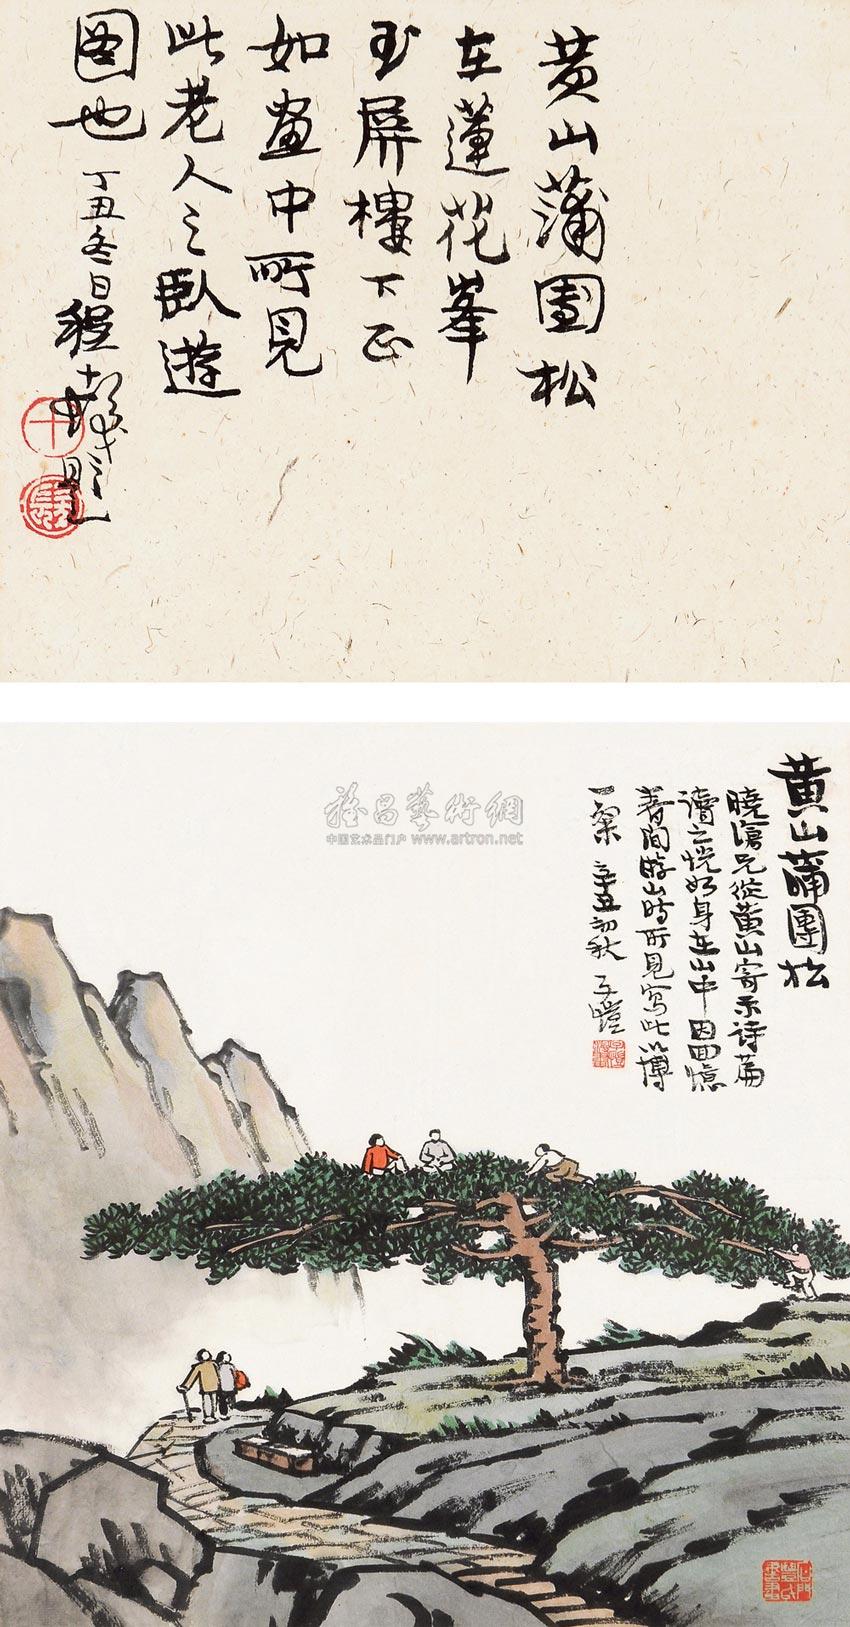 黄山蒲團松
在蓮花峯
玉屏樓下正
如畫中所見
此老人之臥遊
图也
丁丑冬日程十髮題
十
髮
雅昌藝術網
中国艺术品门户 www.artron.net
黄山蒲團松
曉滄兄從黄山寄示诗篇
讀之恍如身在山中因回憶
暮春間游山時所見寫此以博
一粲 辛丑初秋 子愷
石門豐氏書畫